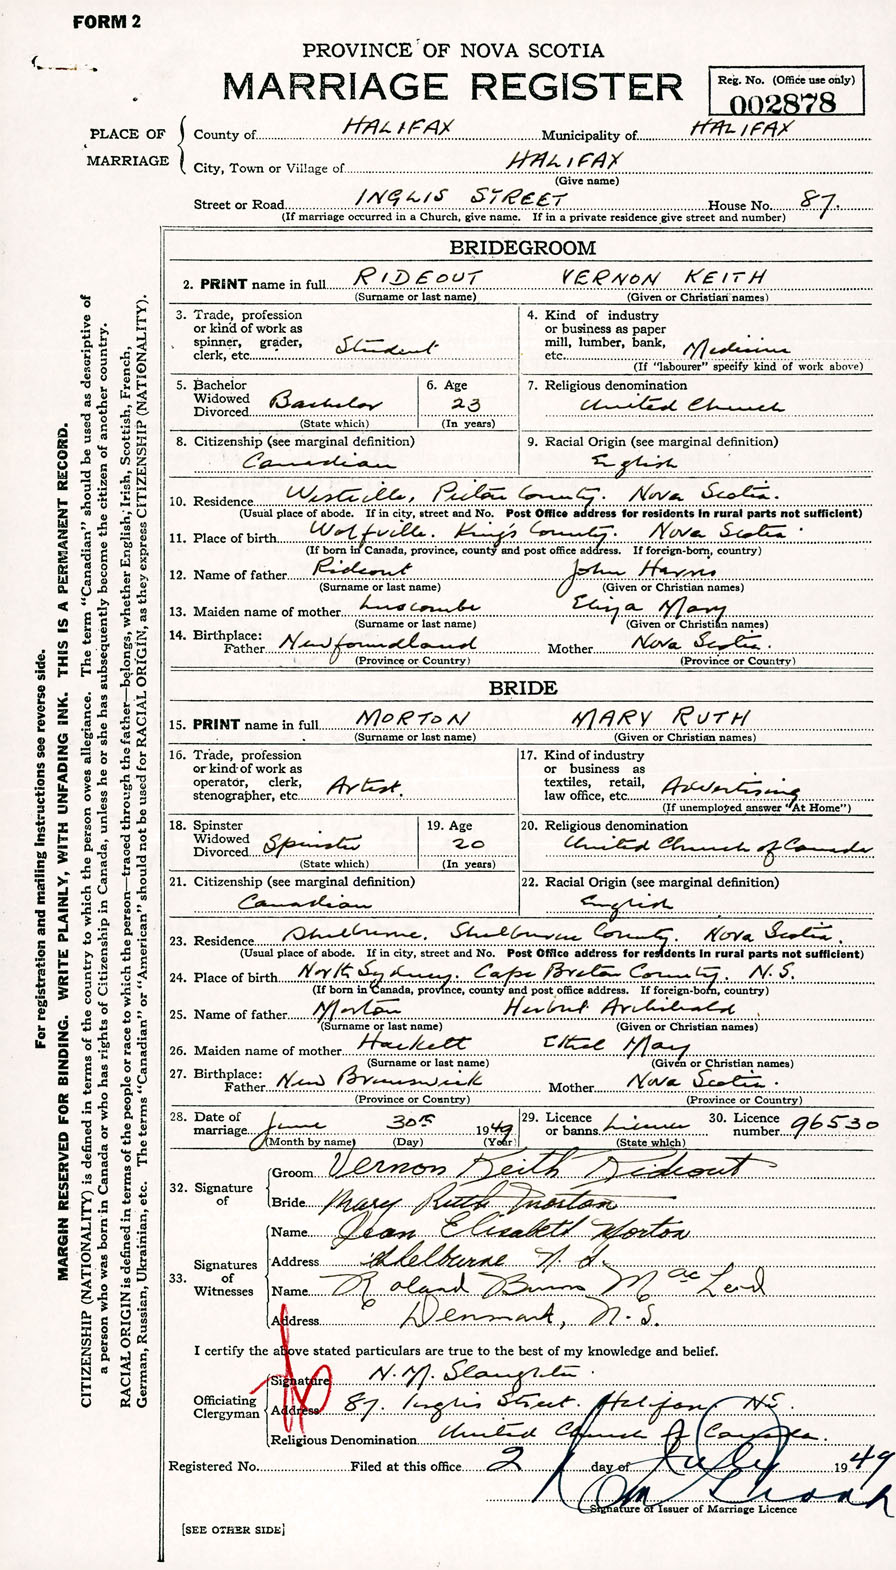 FORM 2
PROVINCE OF NOVA SCOTIA
MARRIAGE REGISTER
Reg. No. (Office use only)
002878
PLACE OF MARRIAGE
County of HALIFAX Municipality of HALIFAX
City, Town or Village of HALIFAX
(Give name)
Street or Road INGLIS STREET House No. 87.
(If marriage occurred in a Church, give name. If in a private residence give street and number)
BRIDEGROOM
2. PRINT name in full RIDEOUT VERNON KEITH
(Surname or last name) (Given or Christian names)
3. Trade, profession
or kind of work as
spinner, grader,
clerk, etc. Student
4. Kind of industry
or business as paper
mill, lumber, bank,
etc. Medicine
(If "labourer" specify kind of work above)
5. Bachelor
Widowed
Divorced Bachelor
(State which)
6. Age
23
(In years)
7. Religious denomination
United Church
8. Citizenship (see marginal definition)
Canadian
9. Racial Origin (see marginal definition)
English
10. Residence Westville, Pictou County. Nova Scotia.
(Usual place of abode. If in city, street and No. Post Office address for residents in rural parts not sufficient)
11. Place of birth Wolfville. King's County. Nova Scotia.
(If born in Canada, province, county and post office address. If foreign-born, country)
12. Name of father Rideout John Harris
(Surname or last name) (Given or Christian names)
13. Maiden name of mother Luscombe Eliza Mary
(Surname or last name) (Given or Christian names)
14. Birthplace:
Father Newfoundland Mother Nova Scotia.
(Province or Country) (Province or Country)
BRIDE
15. PRINT name in full MORTON MARY RUTH
(Surname or last name) (Given or Christian names)
16. Trade, profession
or kind of work as
operator, clerk,
stenographer, etc. Artist.
17. Kind of industry
or business as
textiles, retail,
law office, etc. Advertising
(If unemployed answer "At Home")
18. Spinster
Widowed
Divorced Spinster
(State which)
19. Age
20
(In years)
20. Religious denomination
United Church of Canada
21. Citizenship (see marginal definition)
Canadian
22. Racial Origin (see marginal definition)
English
23. Residence Shelburne. Shelburne County. Nova Scotia.
(Usual place of abode. If in city, street and No. Post Office address for residents in rural parts not sufficient)
24. Place of birth North Sydney. Cape Breton County. N.S.
(If born in Canada, province, county and post office address. If foreign-born, country)
25. Name of father Morton Herbert Archibald
(Surname or last name) (Given or Christian names)
26. Maiden name of mother Hackett Ethel May
(Surname or last name) (Given or Christian names)
27. Birthplace:
Father New Brunswick Mother Nova Scotia.
(Province or Country) (Province or Country)
28. Date of
marriage June 30th 1949
(Month by name) (Day) (Year)
29. Licence
or banns License
(State which)
30. Licence
number 96530
32. Signature of
Groom Vernon Keith Rideout
Bride Mary Ruth Morton
33. Signatures of Witnesses
Name Jean Elisabeth Morton
Address Shelburne N.S.
Name Roland Burns MacLeod
Address Denmark, N.S.
I certify the above stated particulars are true to the best of my knowledge and belief.
Officiating Clergyman
Signature N.M. Slaughter.
Address 87. Inglis Street. Halifax, N.S.
Religious Denomination United Church of Canada.
Registered No. Filed at this office 2 day of July 1949
Signature of Issuer of Marriage Licence
[SEE OTHER SIDE]
For registration and mailing instructions see reverse side.
MARGIN RESERVED FOR BINDING. WRITE PLAINLY, WITH UNFADING INK. THIS IS A PERMANENT RECORD.
CITIZENSHIP (NATIONALITY) is defined in terms of the country to which the person owes allegiance. The term "Canadian" should be used as descriptive of
a person who was born in Canada or who has rights of Citizenship in Canada, unless he or she has subsequently become the citizen of another country.
RACIAL ORIGIN is defined in terms of the people or race to which the person—traced through the father—belongs, whether English, Irish, Scottish, French,
German, Russian, Ukrainian, etc. The terms "Canadian" or "American" should not be used for RACIAL ORIGIN, as they express CITIZENSHIP (NATIONALITY).